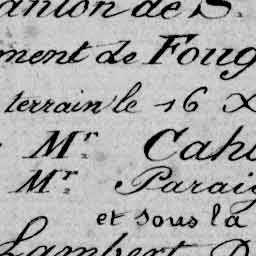 anton de S.
ment de Foug
terrain le 16 X
Mr Cah
Mr Paraig
et sous la
Lambert D